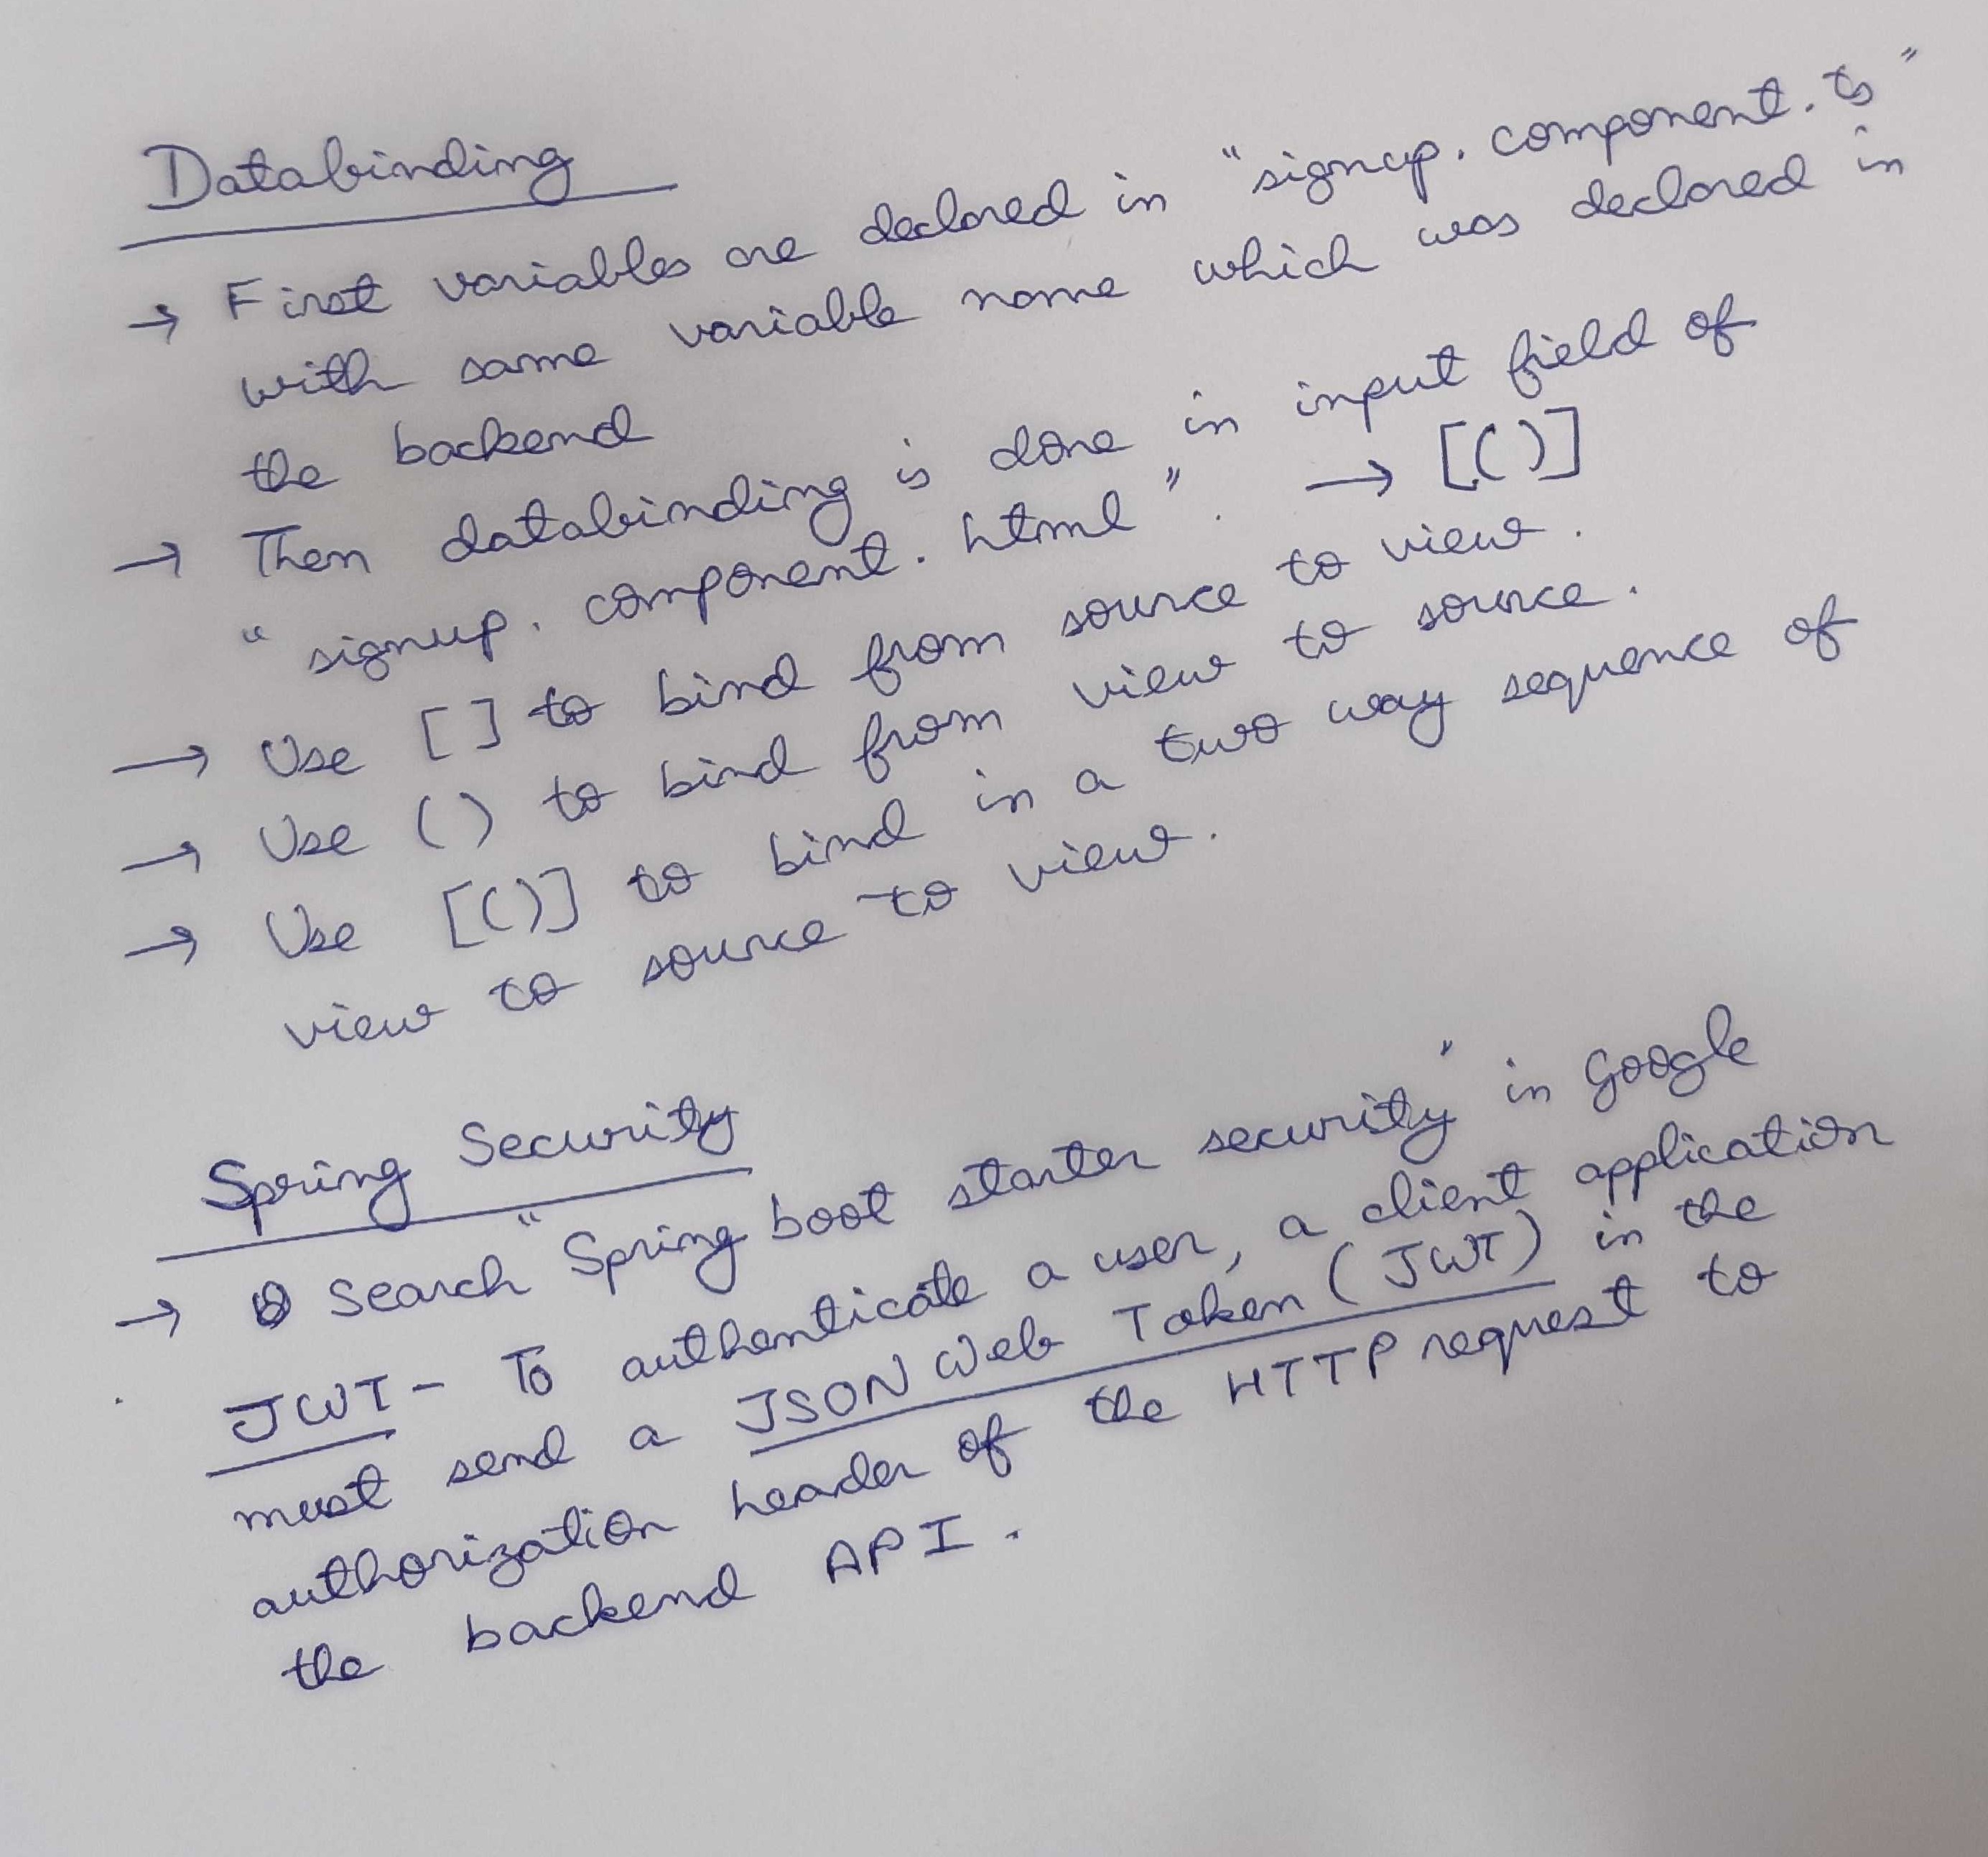 Databinding
→ First variables are declared in "signup.component.ts"
with same variable name which was declared in
the backend
→ Then databinding is done in input field of
"signup.component.html". → [()]
→ Use [] to bind from source to view.
→ Use () to bind from view to source.
→ Use [()] to bind in a two way sequence of
view to source to view.
Spring Security
→ Search "Spring boot starter security" in Google
JWT - To authenticate a user, a client application
must send a JSON Web Token (JWT) in the
authorization header of the HTTP request to
the backend API.